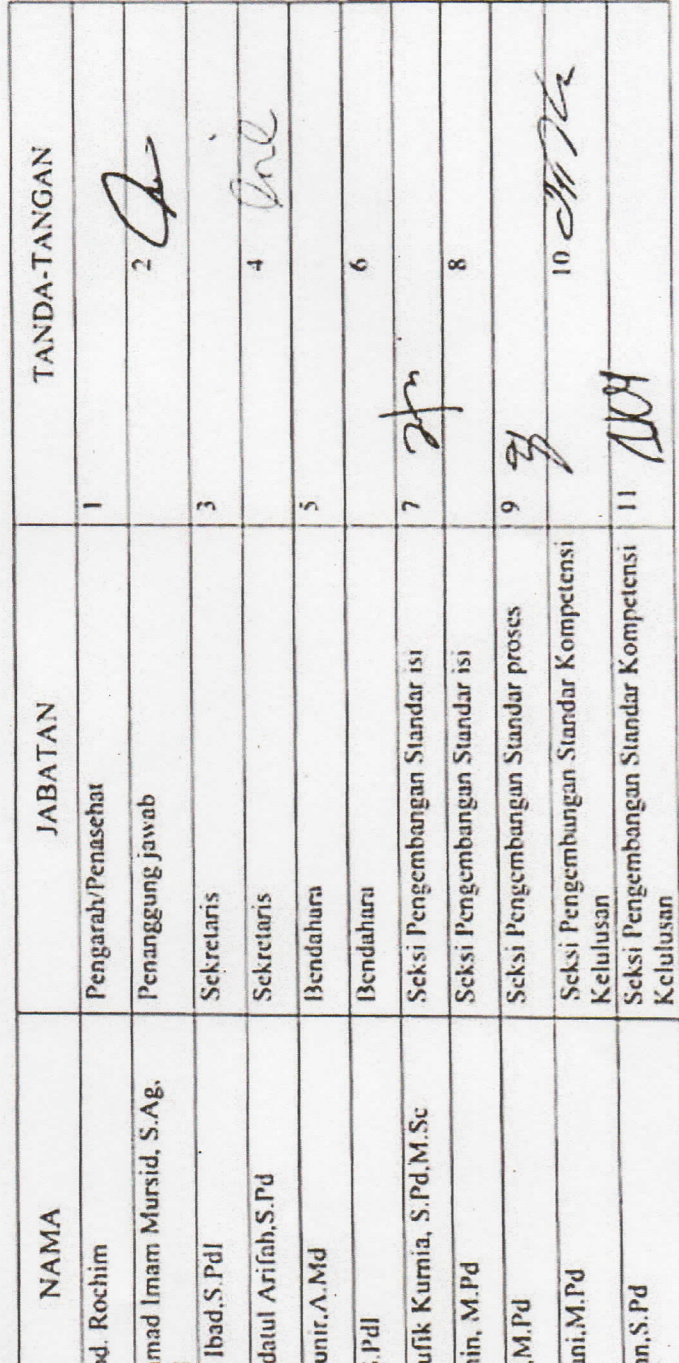 NAMA JABATAN TANDA-TANGAN
od. Rochim Pengarah/Penasehat 1
mad Imam Mursid, S.Ag, Penanggung jawab 2
Ibad,S.PdI Sekretaris 3
datul Arifah,S.Pd Sekretaris 4
unir,A.Md Bendahara 5
.PdI Bendahara 6
ufik Kurnia, S.Pd,M.Sc Seksi Pengembangan Standar isi 7
in, M.Pd Seksi Pengembangan Standar isi 8
,M.Pd Seksi Pengembangan Standar proses 9
ani,M.Pd Seksi Pengembangan Standar Kompetensi 10
Kelulusan
an,S.Pd Seksi Pengembangan Standar Kompetensi 11
Kelulusan